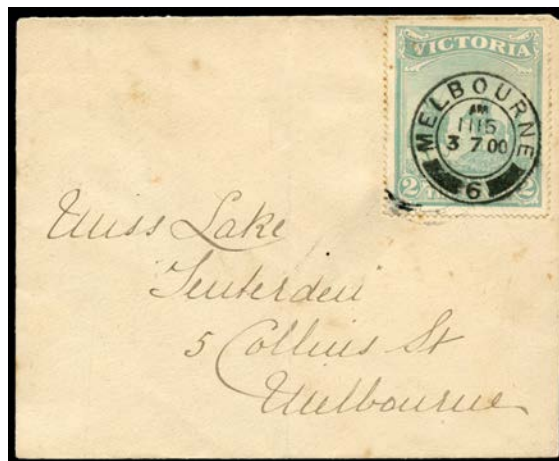 VICTORIA
MELBOURNE
AM
11 15
3 7.00
6
2 2
Miss Lake
Tenterden
5 Collins St
Melbourne